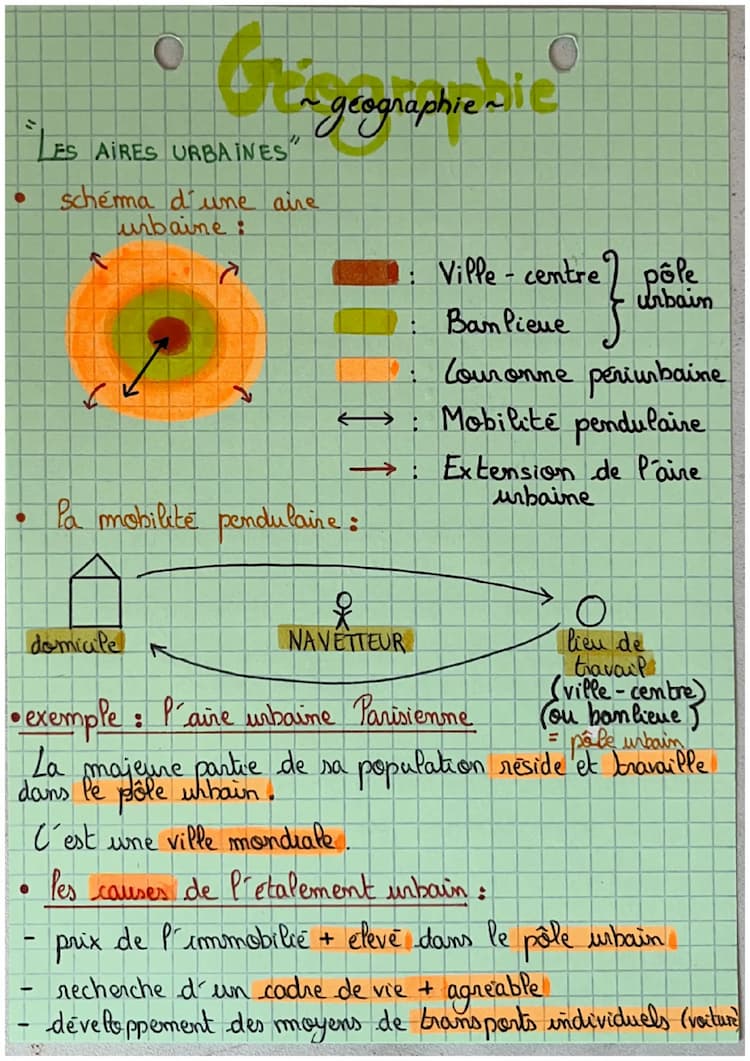 Géographie
~ géographie ~
"LES AIRES URBAINES"
• schéma d'une aire
urbaine :
: Ville - centre } pôle urbain
: Banlieue
: Couronne périurbaine
: Mobilité pendulaire
: Extension de l'aire
urbaine
• la mobilité pendulaire :
domicile
NAVETTEUR
lieu de
travail
(ville - centre)
(ou banlieue)
= pôle urbain
• exemple : l'aire urbaine Parisienne
La majeure partie de sa population réside et travaille
dans le pôle urbain.
C'est une ville mondiale.
• les causes de l'étalement urbain :
- prix de l'immobilié + élevé dans le pôle urbain
- recherche d'un cadre de vie + agréable
- développement des moyens de transports individuels (voiture)